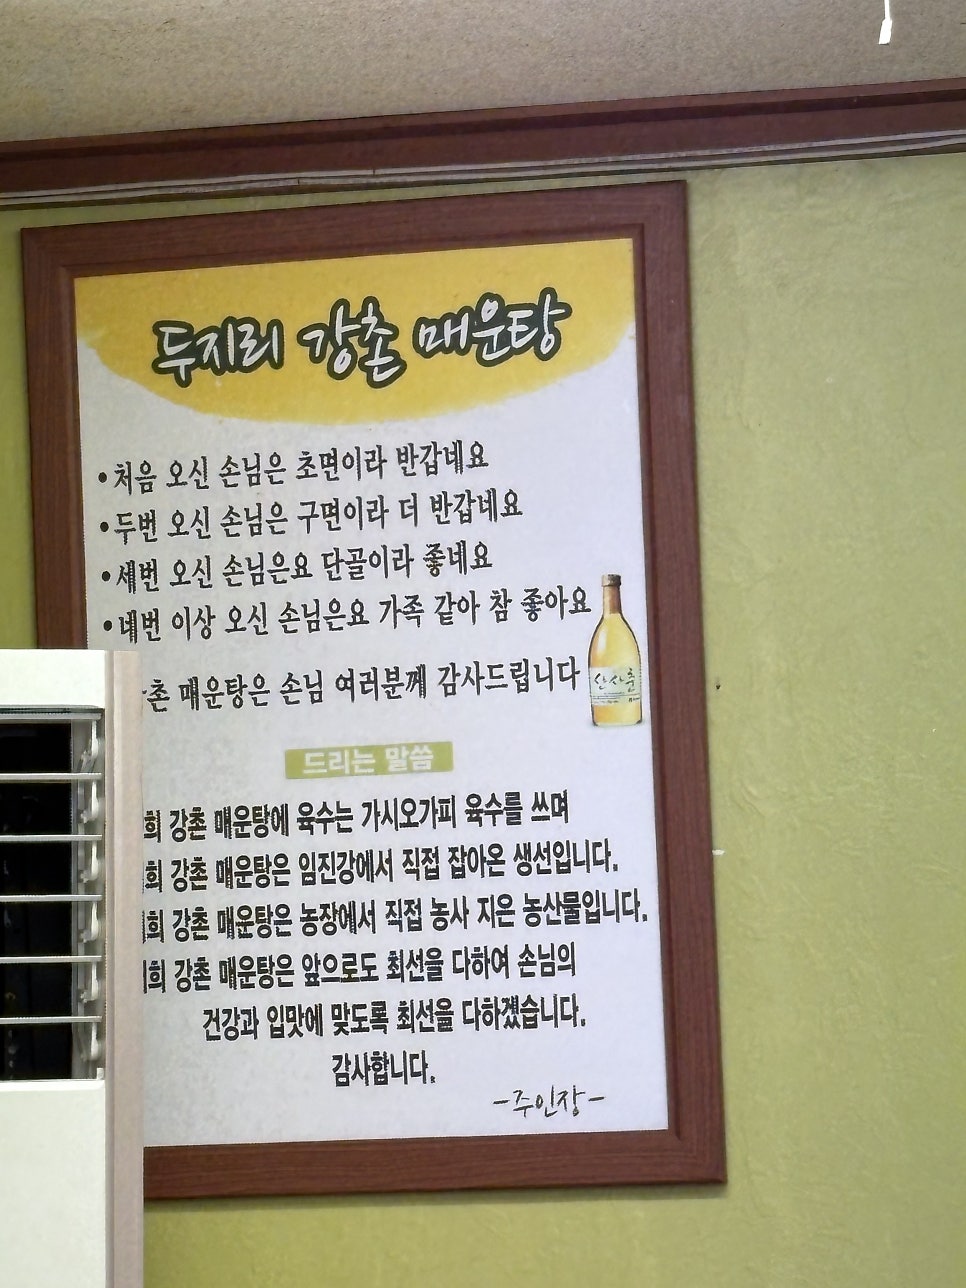 두지리 강촌 매운탕
• 처음 오신 손님은 초면이라 반갑네요
• 두번 오신 손님은 구면이라 더 반갑네요
• 세번 오신 손님은요 단골이라 좋네요
• 네번 이상 오신 손님은요 가족 같아 참 좋아요
촌 매운탕은 손님 여러분께 감사드립니다
산사춘
드리는 말씀
희 강촌 매운탕에 육수는 가시오가피 육수를 쓰며
희 강촌 매운탕은 임진강에서 직접 잡아온 생선입니다.
희 강촌 매운탕은 농장에서 직접 농사 지은 농산물입니다.
희 강촌 매운탕은 앞으로도 최선을 다하여 손님의
건강과 입맛에 맞도록 최선을 다하겠습니다.
감사합니다.
-주인장-